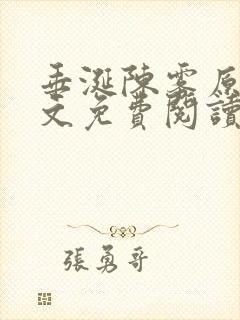 垂涎陳雾原
文免費閱讀
張勇哥